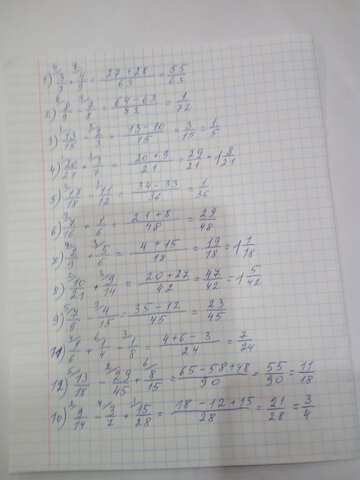 1) ⁹3/7 + ⁷4/9 = 27+28/63 = 55/63
2) ⁸8/9 - ⁹7/8 = 64-63/72 = 1/72
3) ¹13/15 - ⁵2/3 = 13-10/15 = 3/15 = 1/5
4) 20/21 + ³3/7 = 20+9/21 = 29/21 = 1 8/21
5) ²17/18 - ³11/12 = 34-33/36 = 1/36
6) ³7/16 + ⁸1/6 = 21+8/48 = 29/48
7) ²2/9 + ³5/6 = 4+15/18 = 19/18 = 1 1/18
8) ²10/21 + ³9/14 = 20+27/42 = 47/42 = 1 5/42
9) ⁵7/9 - ³4/15 = 35-12/45 = 23/45
11) 1/6 + ⁶1/4 - ³1/8 = 4+6-3/24 = 7/24
12) ⁵13/18 - ²29/45 + ⁶8/15 = 65-58+48/90 = 55/90 = 11/18
10) ²9/14 - ⁴3/7 + ¹15/28 = 18-12+15/28 = 21/28 = 3/4